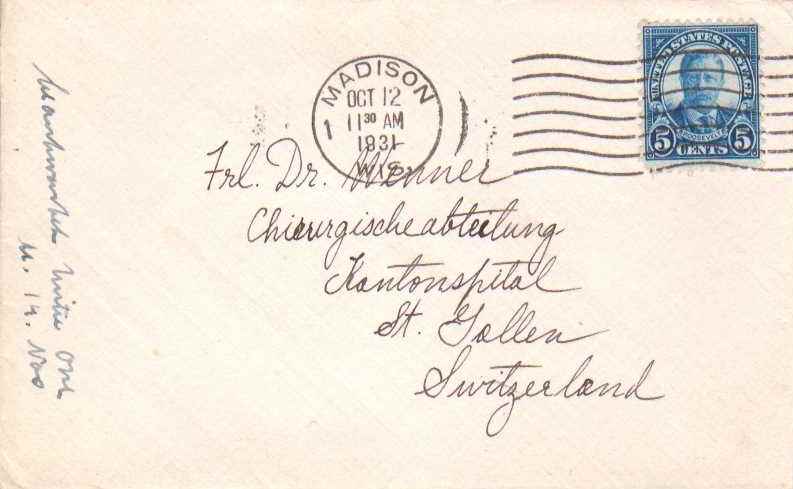 MADISON
OCT 12
11 30 AM
1931
WIS.
1
UNITED STATES POSTAGE
ROOSEVELT
5 CENTS 5
Frl. Dr. Wenner
Chirurgischeabteilung
Kantonspital
St. Gallen
Switzerland